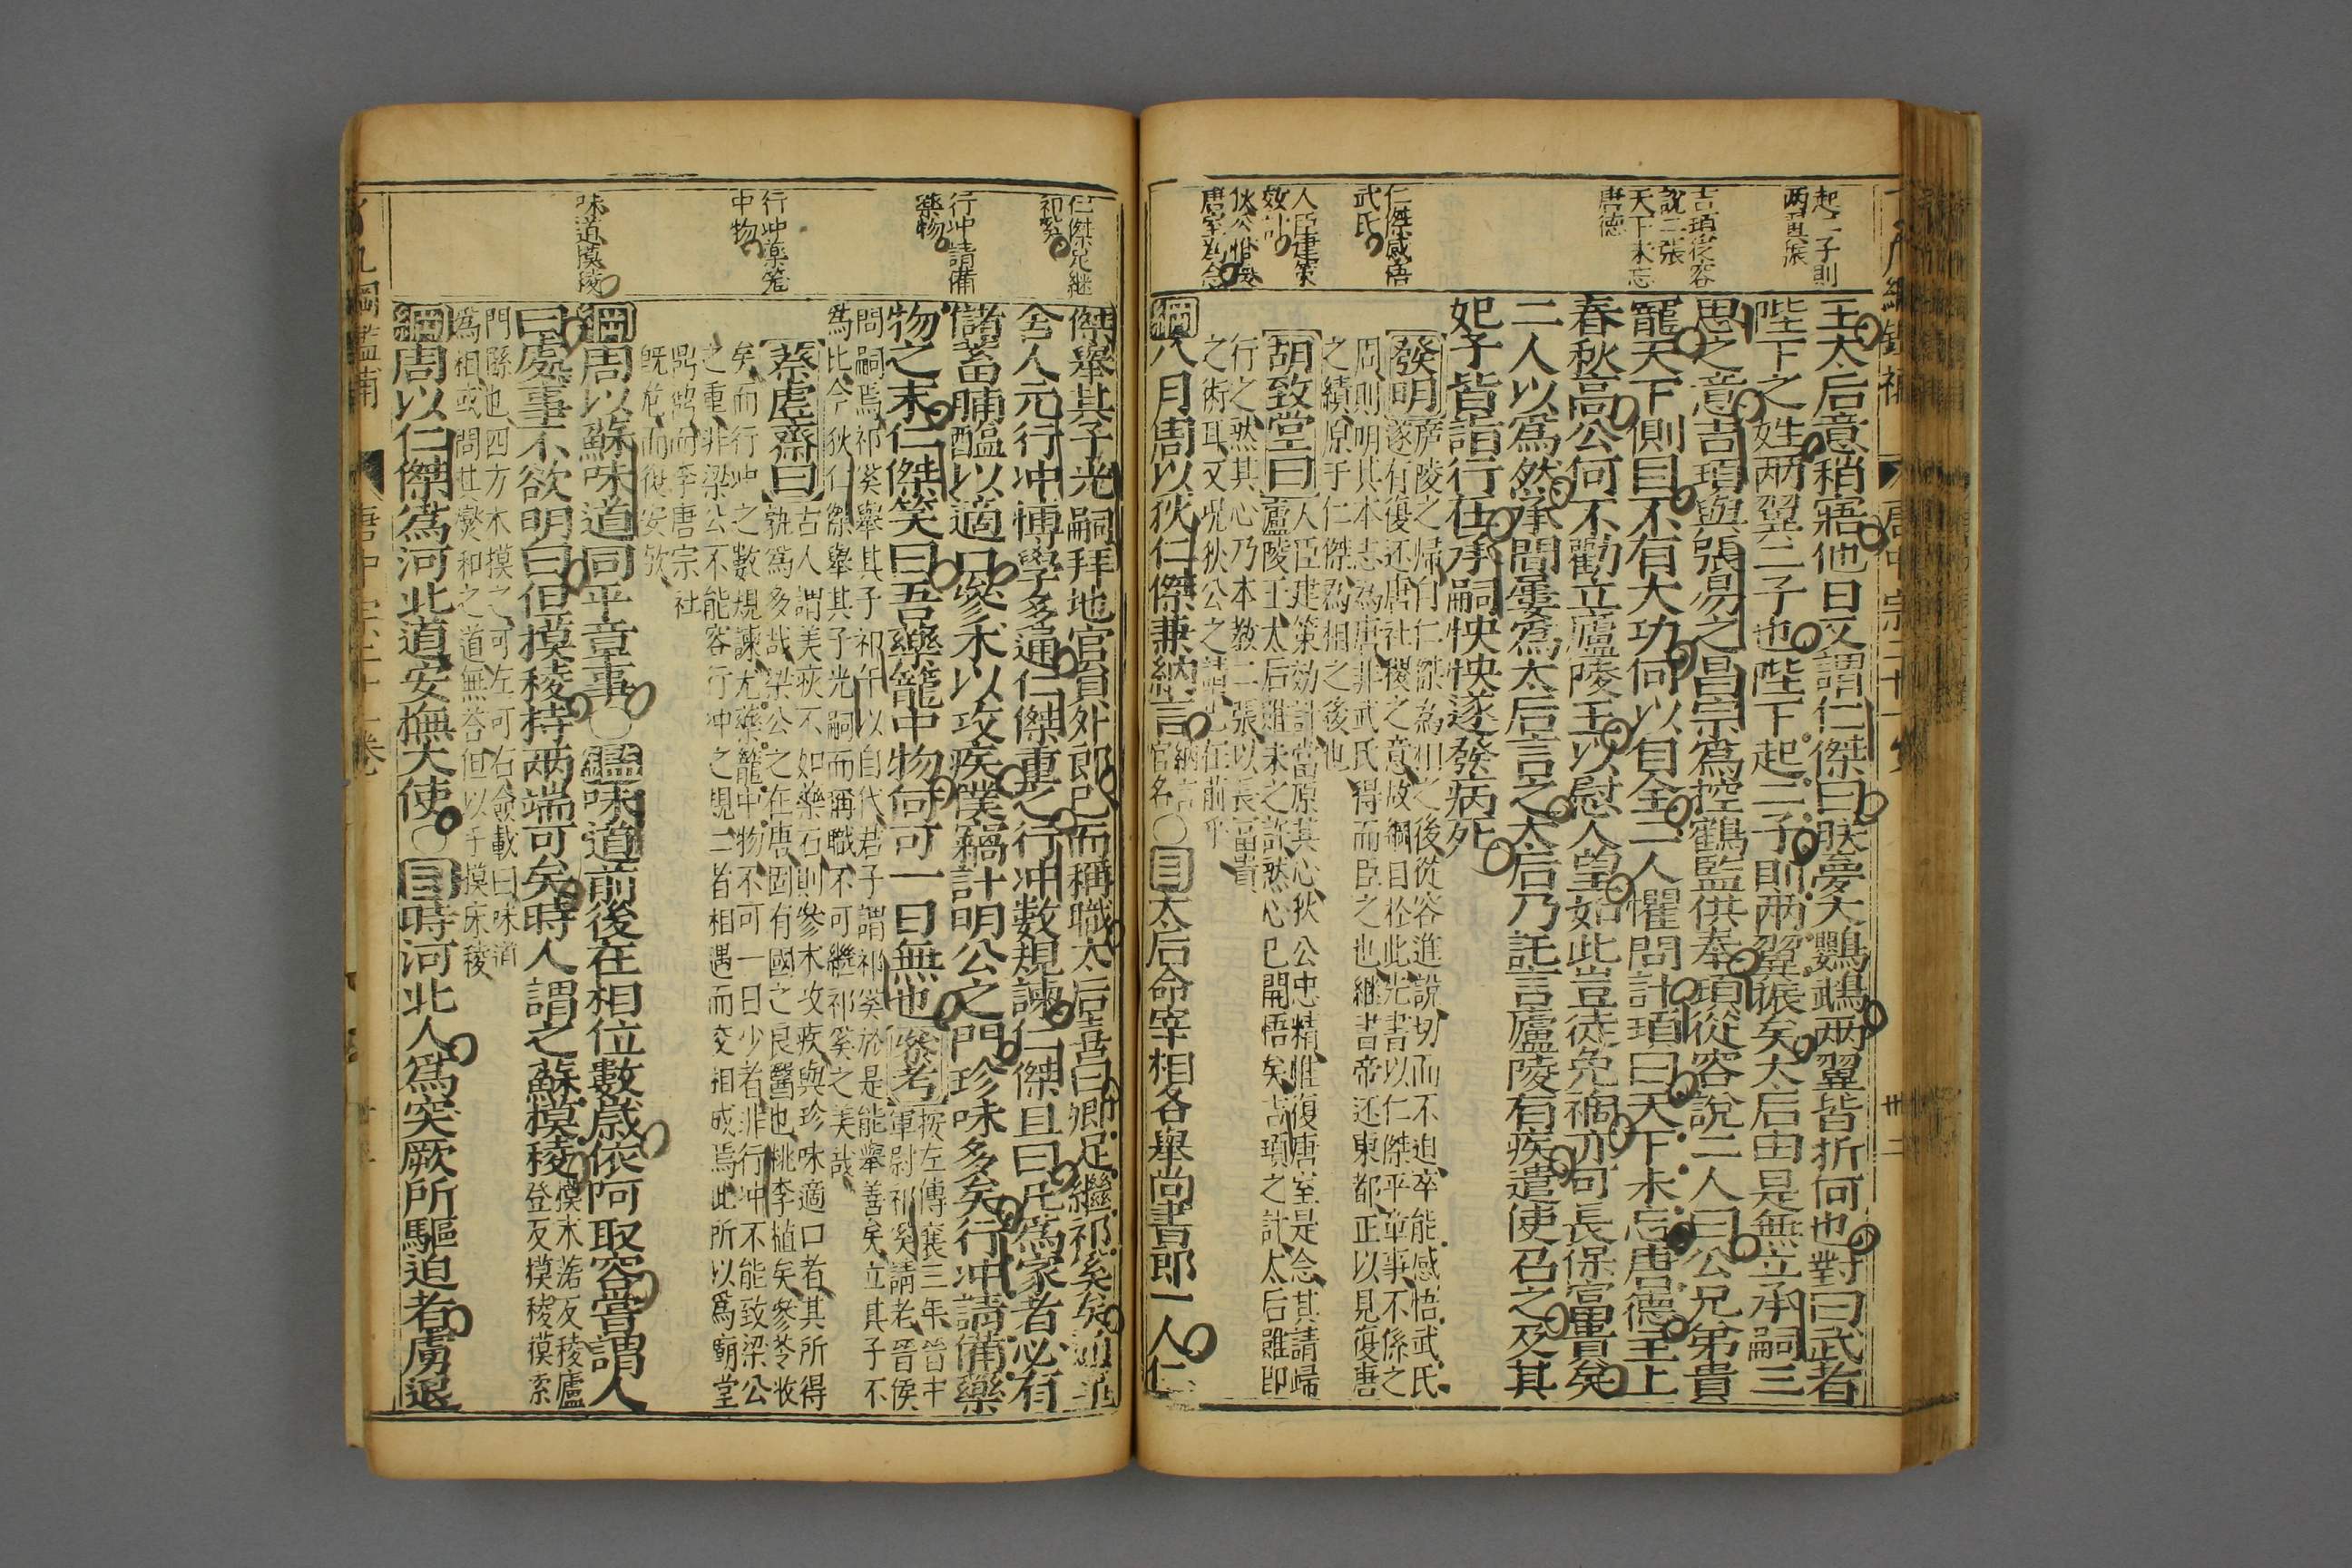 起二子則
两翼振
吉頊從容
說二張
天下未忘
唐德
仁傑感悟
武氏
人臣建策
效計
狄公惟復
唐室為念
王太后意稍寤他日又謂仁傑曰朕夢大鸚鵡两翼皆折何也對曰武者
陛下之姓两翼二子也陛下起二子則两翼振矣太后由是無立承嗣三
思之意吉頊與張易之昌宗爲控鶴監供奉頊從容說二人曰公兄弟貴
寵天下側目不有大功何以自全二人懼問計頊曰天下未忘唐德主上
春秋高公何不勸立廬陵王以慰人望如此豈徒免禍亦可長保富貴矣
二人以爲然承間屢爲太后言之太后乃託言廬陵有疾遣使召之及其
妃子皆詣行在承嗣怏怏遂發病死
發明
廬陵之歸自仁傑為相之後從容進說切而不迫卒能感悟武氏
遂有復还唐社稷之意故綱目於此先書以仁傑平章事不係之
周則明其本志為唐非武氏得而臣之也継書帝还東都正以見復唐
之績原于仁傑為相之後也
胡致堂曰
人臣建策効計當原其心狄公忠精惟復唐室是念其請歸
廬陵王太后雖未之許然心已開悟矣吉頊之計太后雖即
行之然其心乃本教二張以長富貴
之術耳又况狄公之請已在前乎
綱八月周以狄仁傑兼納言納言官名〇目太后命宰相各舉尚書郎一人仁
仁傑足継
祁奚
行冲請備
藥物
行冲藥笼
中物
味道模稜
傑舉其子光嗣拜地官員外郎已而稱職太后喜曰卿足繼祁奚矣通事
舍人元行冲博學多通仁傑重之行冲數規諫仁傑且曰凡爲家者必有
儲蓄脯醢以適口參术以攻疾僕竊計明公之門珍味多矣行冲請備藥
物之末仁傑笑曰吾藥籠中物何可一日無也叅考
按左傳襄三年晉中
軍尉祁奚請老晉侯
問嗣焉祁奚舉其子祁午以自代君子謂祁奚於是能舉善矣立其子不
為比今狄仁傑舉其子光嗣而稱職不可繼祁奚之美哉
蔡虛齋曰
古人謂美疢不如藥石則參术攻疾與珍味適口者其所得
孰爲多哉梁公之在唐固有國之良醫也桃李植矣參苓收
矣而行冲之數規諫尤藥籠中物不可一日少者非行冲不能致梁公
之重非梁公不能容行冲之規二者相遇而交相成焉此所以爲廟堂
鼎鼐而李唐宗社
旣危而復安欤
綱周以蘇味道同平章事〇鑑味道前後在相位數歲依阿取容嘗謂人
曰處事不欲明白但摸稜持两端可矣時人謂之蘇摸稜
摸木洛反稜廬
登反摸稜摸索
門縣也四方木摸之可左可右僉載曰味道
為相或問其燮和之道無答但以手摸床稜
綱周以仁傑爲河北道安撫大使〇目時河北人爲突厥所驅迫者虜退